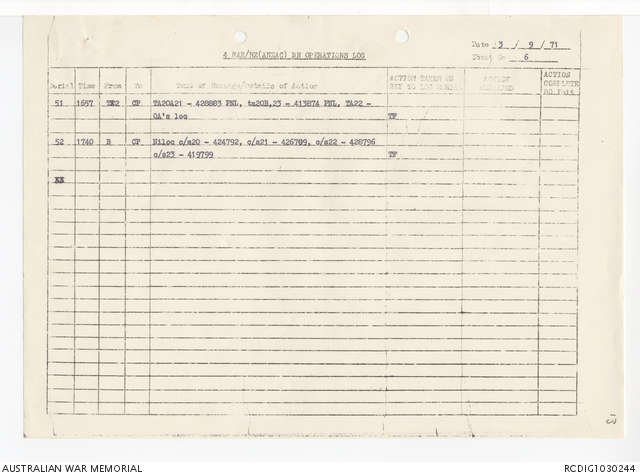 4 RAR/NZ(ANZAC) BN OPERATIONS LOG
Date 3 / 9 / 71
Sheet No 6
Serial Time From To Text of Message/Details of Action ACTION TAKEN ON
ACTION
ACTION COMPLETE
51 1657 CP TA20A21 - 428883 FNL, ta20B,23 - 413874 FNL, TA22 -
OA's loc TF
52 1740 B CP Niloc c/s20 - 424792, c/s21 - 426709, c/s22 - 428796
c/s23 - 419799 TF
XX
AUSTRALIAN WAR MEMORIAL
RCDIG1030244